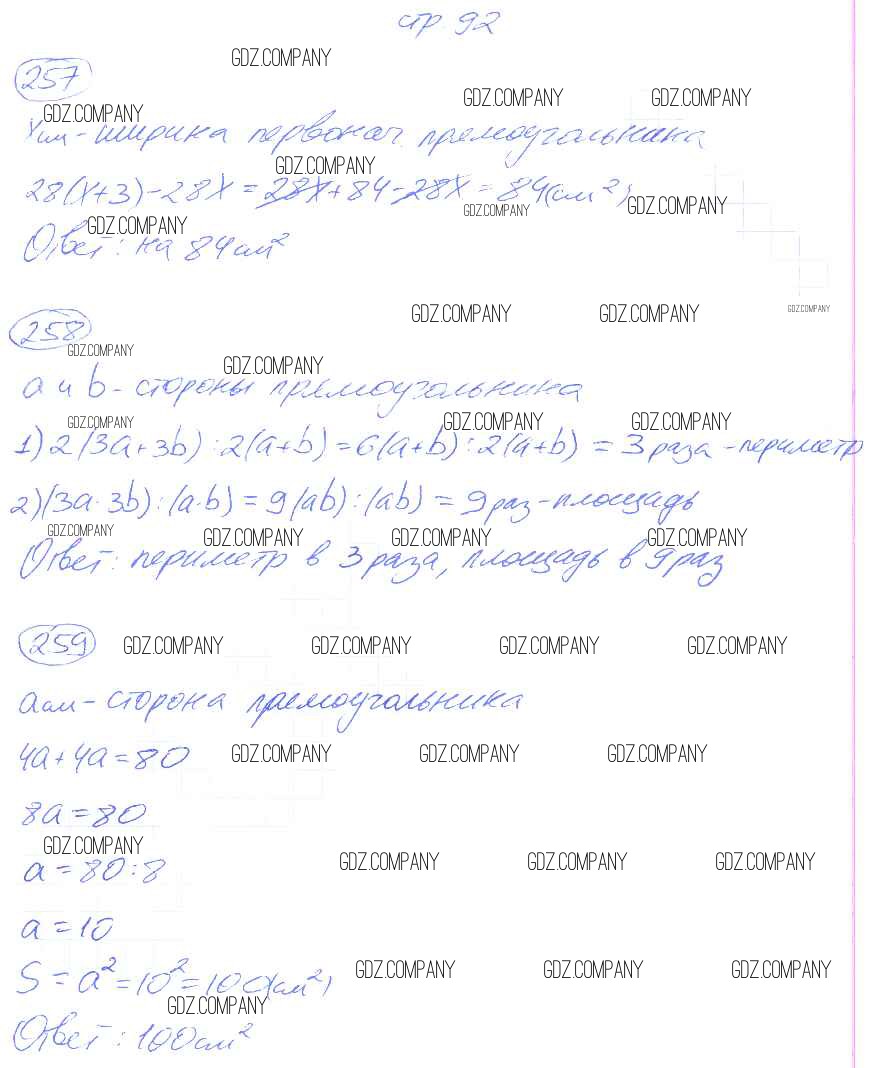 стр. 92
GDZ.COMPANY
257
GDZ.COMPANY GDZ.COMPANY
GDZ.COMPANY
Xсм - ширина первонач. прямоугольника
GDZ.COMPANY
28(x+3)-28x = 28x+84-28x = 84(см²)
GDZ.COMPANY GDZ.COMPANY
GDZ.COMPANY
Ответ: на 84см²
GDZ.COMPANY GDZ.COMPANY GDZ.COMPANY
258
GDZ.COMPANY
GDZ.COMPANY
a и b - стороны прямоугольника
GDZ.COMPANY GDZ.COMPANY GDZ.COMPANY
1) 2(3a+3b) : 2(a+b) = 6(a+b) : 2(a+b) = 3 раза - периметр
2) (3a·3b) : (a·b) = 9(ab) : (ab) = 9 раз - площадь
GDZ.COMPANY GDZ.COMPANY GDZ.COMPANY GDZ.COMPANY
Ответ: периметр в 3 раза, площадь в 9 раз
259
GDZ.COMPANY GDZ.COMPANY GDZ.COMPANY GDZ.COMPANY
aсм - сторона прямоугольника
4a+4a=80
GDZ.COMPANY GDZ.COMPANY GDZ.COMPANY
8a=80
GDZ.COMPANY
a=80:8
GDZ.COMPANY GDZ.COMPANY GDZ.COMPANY
a=10
S=a²=10²=100(см²)
GDZ.COMPANY GDZ.COMPANY GDZ.COMPANY
GDZ.COMPANY
Ответ: 100см²